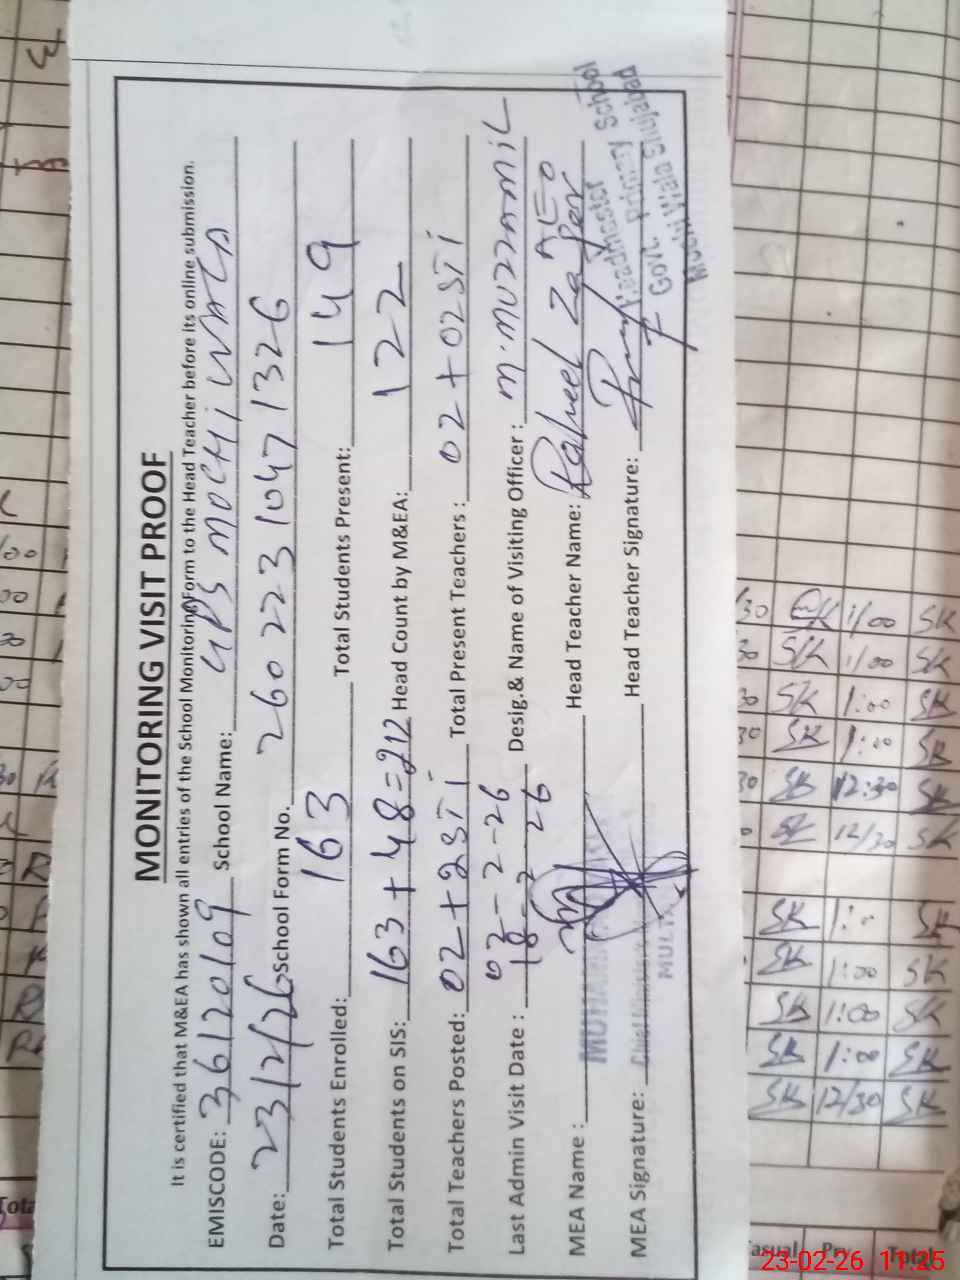 MONITORING VISIT PROOF
It is certified that M&EA has shown all entries of the School Monitoring Form to the Head Teacher before its online submission.
EMISCODE: 36120109 School Name: GPS MOCHI WALA
Date: 23/2/26 School Form No. 260223 1047 1326
Total Students Enrolled: 163 Total Students Present: 149
Total Students on SIS: 163 + 48 = 212 Head Count by M&EA: 122
Total Teachers Posted: 02 + 2STI Total Present Teachers : 02 + 02STI
Last Admin Visit Date : 26 Desig.& Name of Visiting Officer : M.MUZZAMIL
AEO
MEA Name : Head Teacher Name: Raheel Zafar
MEA Signature: Head Teacher Signature:
Headmaster
Govt. Primary School
Mochi Wala Shujabad
MULTAN
/30 SK 1/00 SK
30 SK 1/00 SK
30 SK 1:00 SK
30 SK 1:00 SK
30 SK 12:30 SK
SK 12/30 SK
SK 1: SK
SK 1:00 SK
SK 1:00 SK
SK 1:00 SK
SK 12/30 SK
Total
Casual Pry Total
23-02-26 11:25